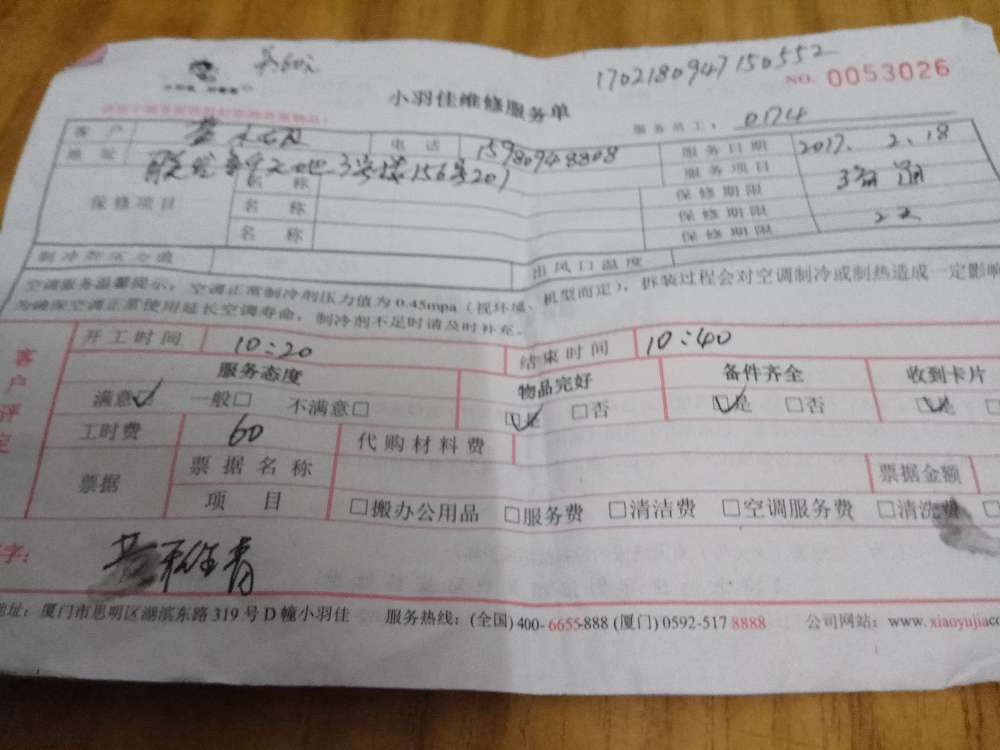 1702180947150552
NO. 0053026
小羽佳维修服务单
服务员工: 0174
客 户 电 话 15980948808 服务日期 2017. 2. 18
地 址 3号楼156号201 服务项目
保修项目 名 称 保修期限
名 称 保修期限
名 称 保修期限
制冷剂压力值 出风口温度
空调服务温馨提示:空调正常制冷剂压力值为0.45mpa(视环境、机型而定),拆装过程会对空调制冷或制热造成一定影响
为确保空调正常使用延长空调寿命,制冷剂不足时请及时补充。
客户评定
开工时间 10:20 结束时间 10:40
服务态度 物品完好 备件齐全 收到卡片
满意☑ 一般□ 不满意□ ☑是 □否 ☑是 □否 ☑是
工时费 60 代购材料费
票据 票据名称 票据金额
项 目 □搬办公用品 □服务费 □清洁费 □空调服务费 □清洗费
字:
地址:厦门市思明区湖滨东路319号D幢小羽佳 服务热线:(全国)400-6655-888 (厦门)0592-517 8888 公司网站:www.xiaoyujiaco